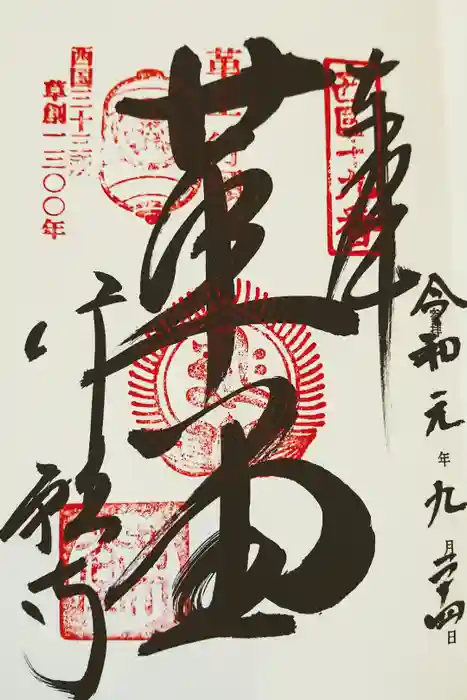 奉拝
西国十九番
令和元年九月二十四日
革堂
行願寺
西国三十三所
草創一三〇〇年